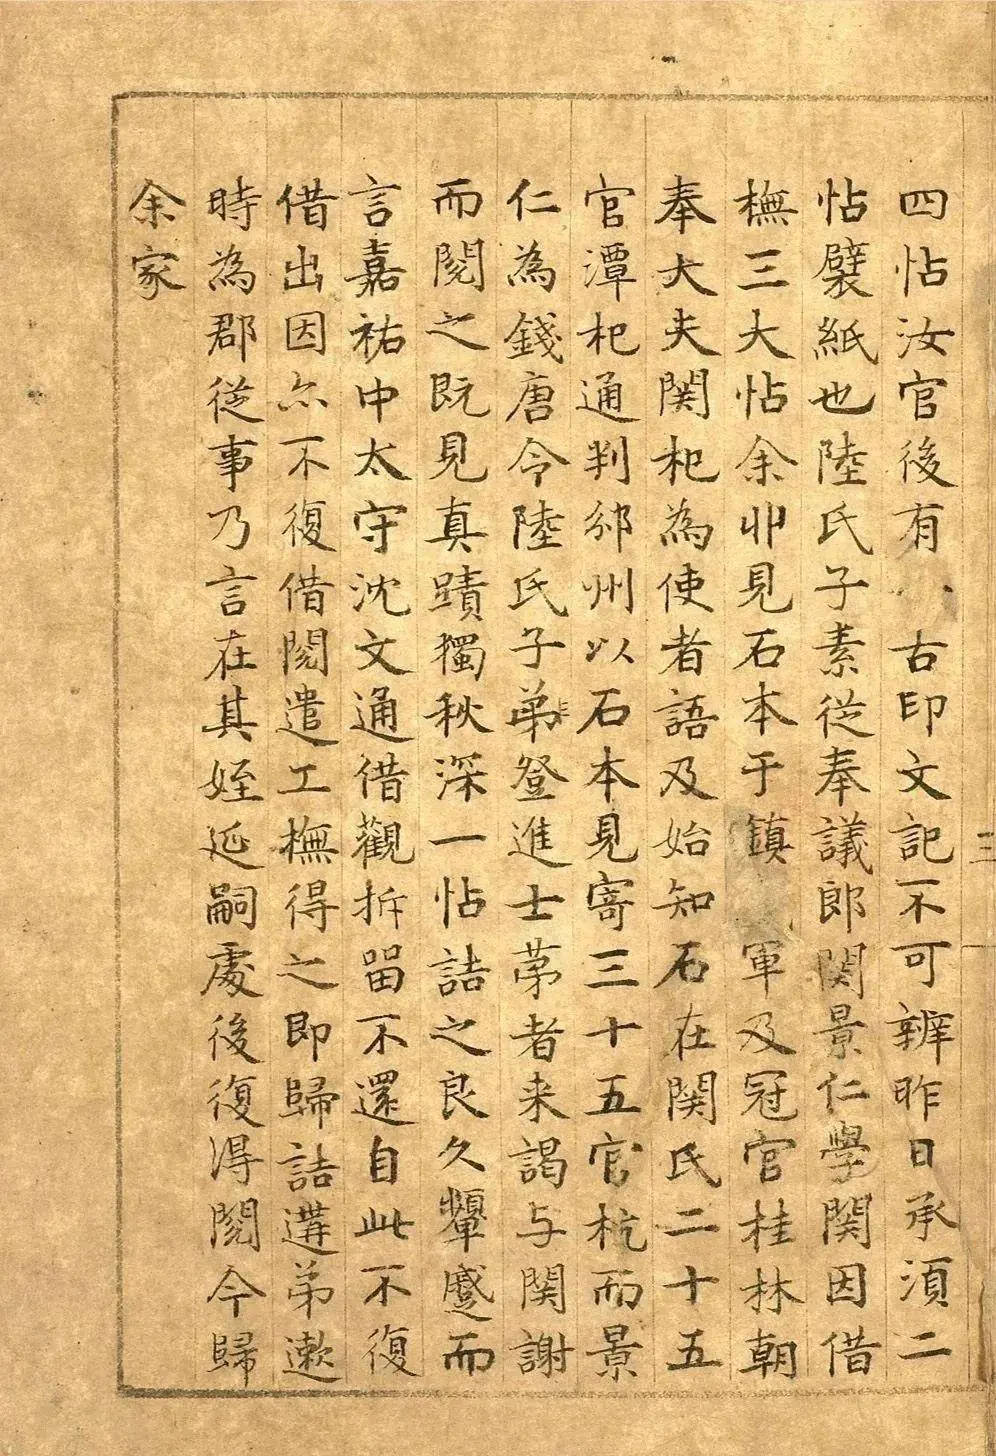 四帖汝官後有八古印文記不可辨昨日承須二
帖襞紙也陸氏子素從奉議郎関景仁學関因借
橅三大帖余丱見石本于鎮軍及冠官桂林朝
奉大夫関杞為使者語及始知石在関氏二十五
官潭杞通判邠州以石本見寄三十五官杭而景
仁為錢唐令陸氏子弟登進士苐者来謁与関謝
而閱之既見真蹟獨秋深一帖詰之良久顰蹙而
言嘉祐中太守沈文通借觀拆留不還自此不復
借出因尒不復借閱遣工橅得之即歸詰遘弟遬
時為郡從事乃言在其姪延嗣處後復淂閱今歸
余家
三